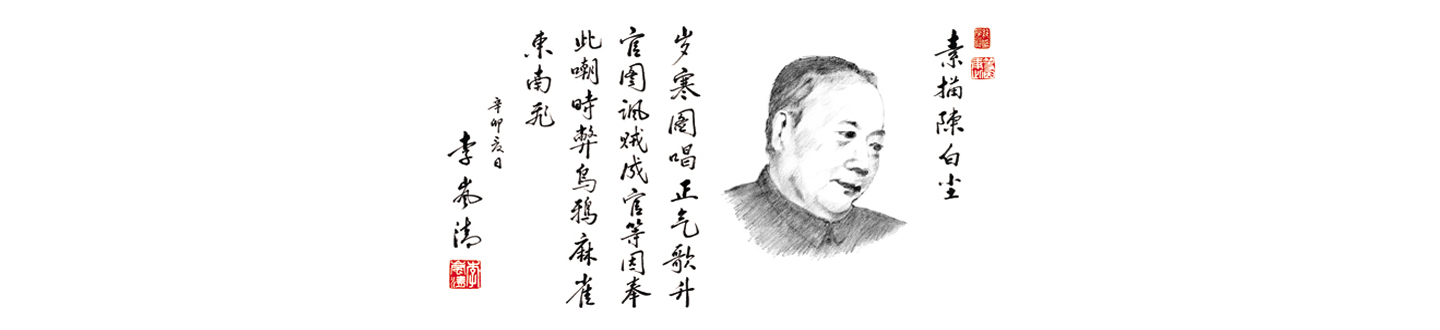 素描陳白尘
岁寒图唱正气歌升
官图讽贼成官等因奉
此嘲時弊烏鴉麻雀
東南飛
辛卯夏日
李岚清